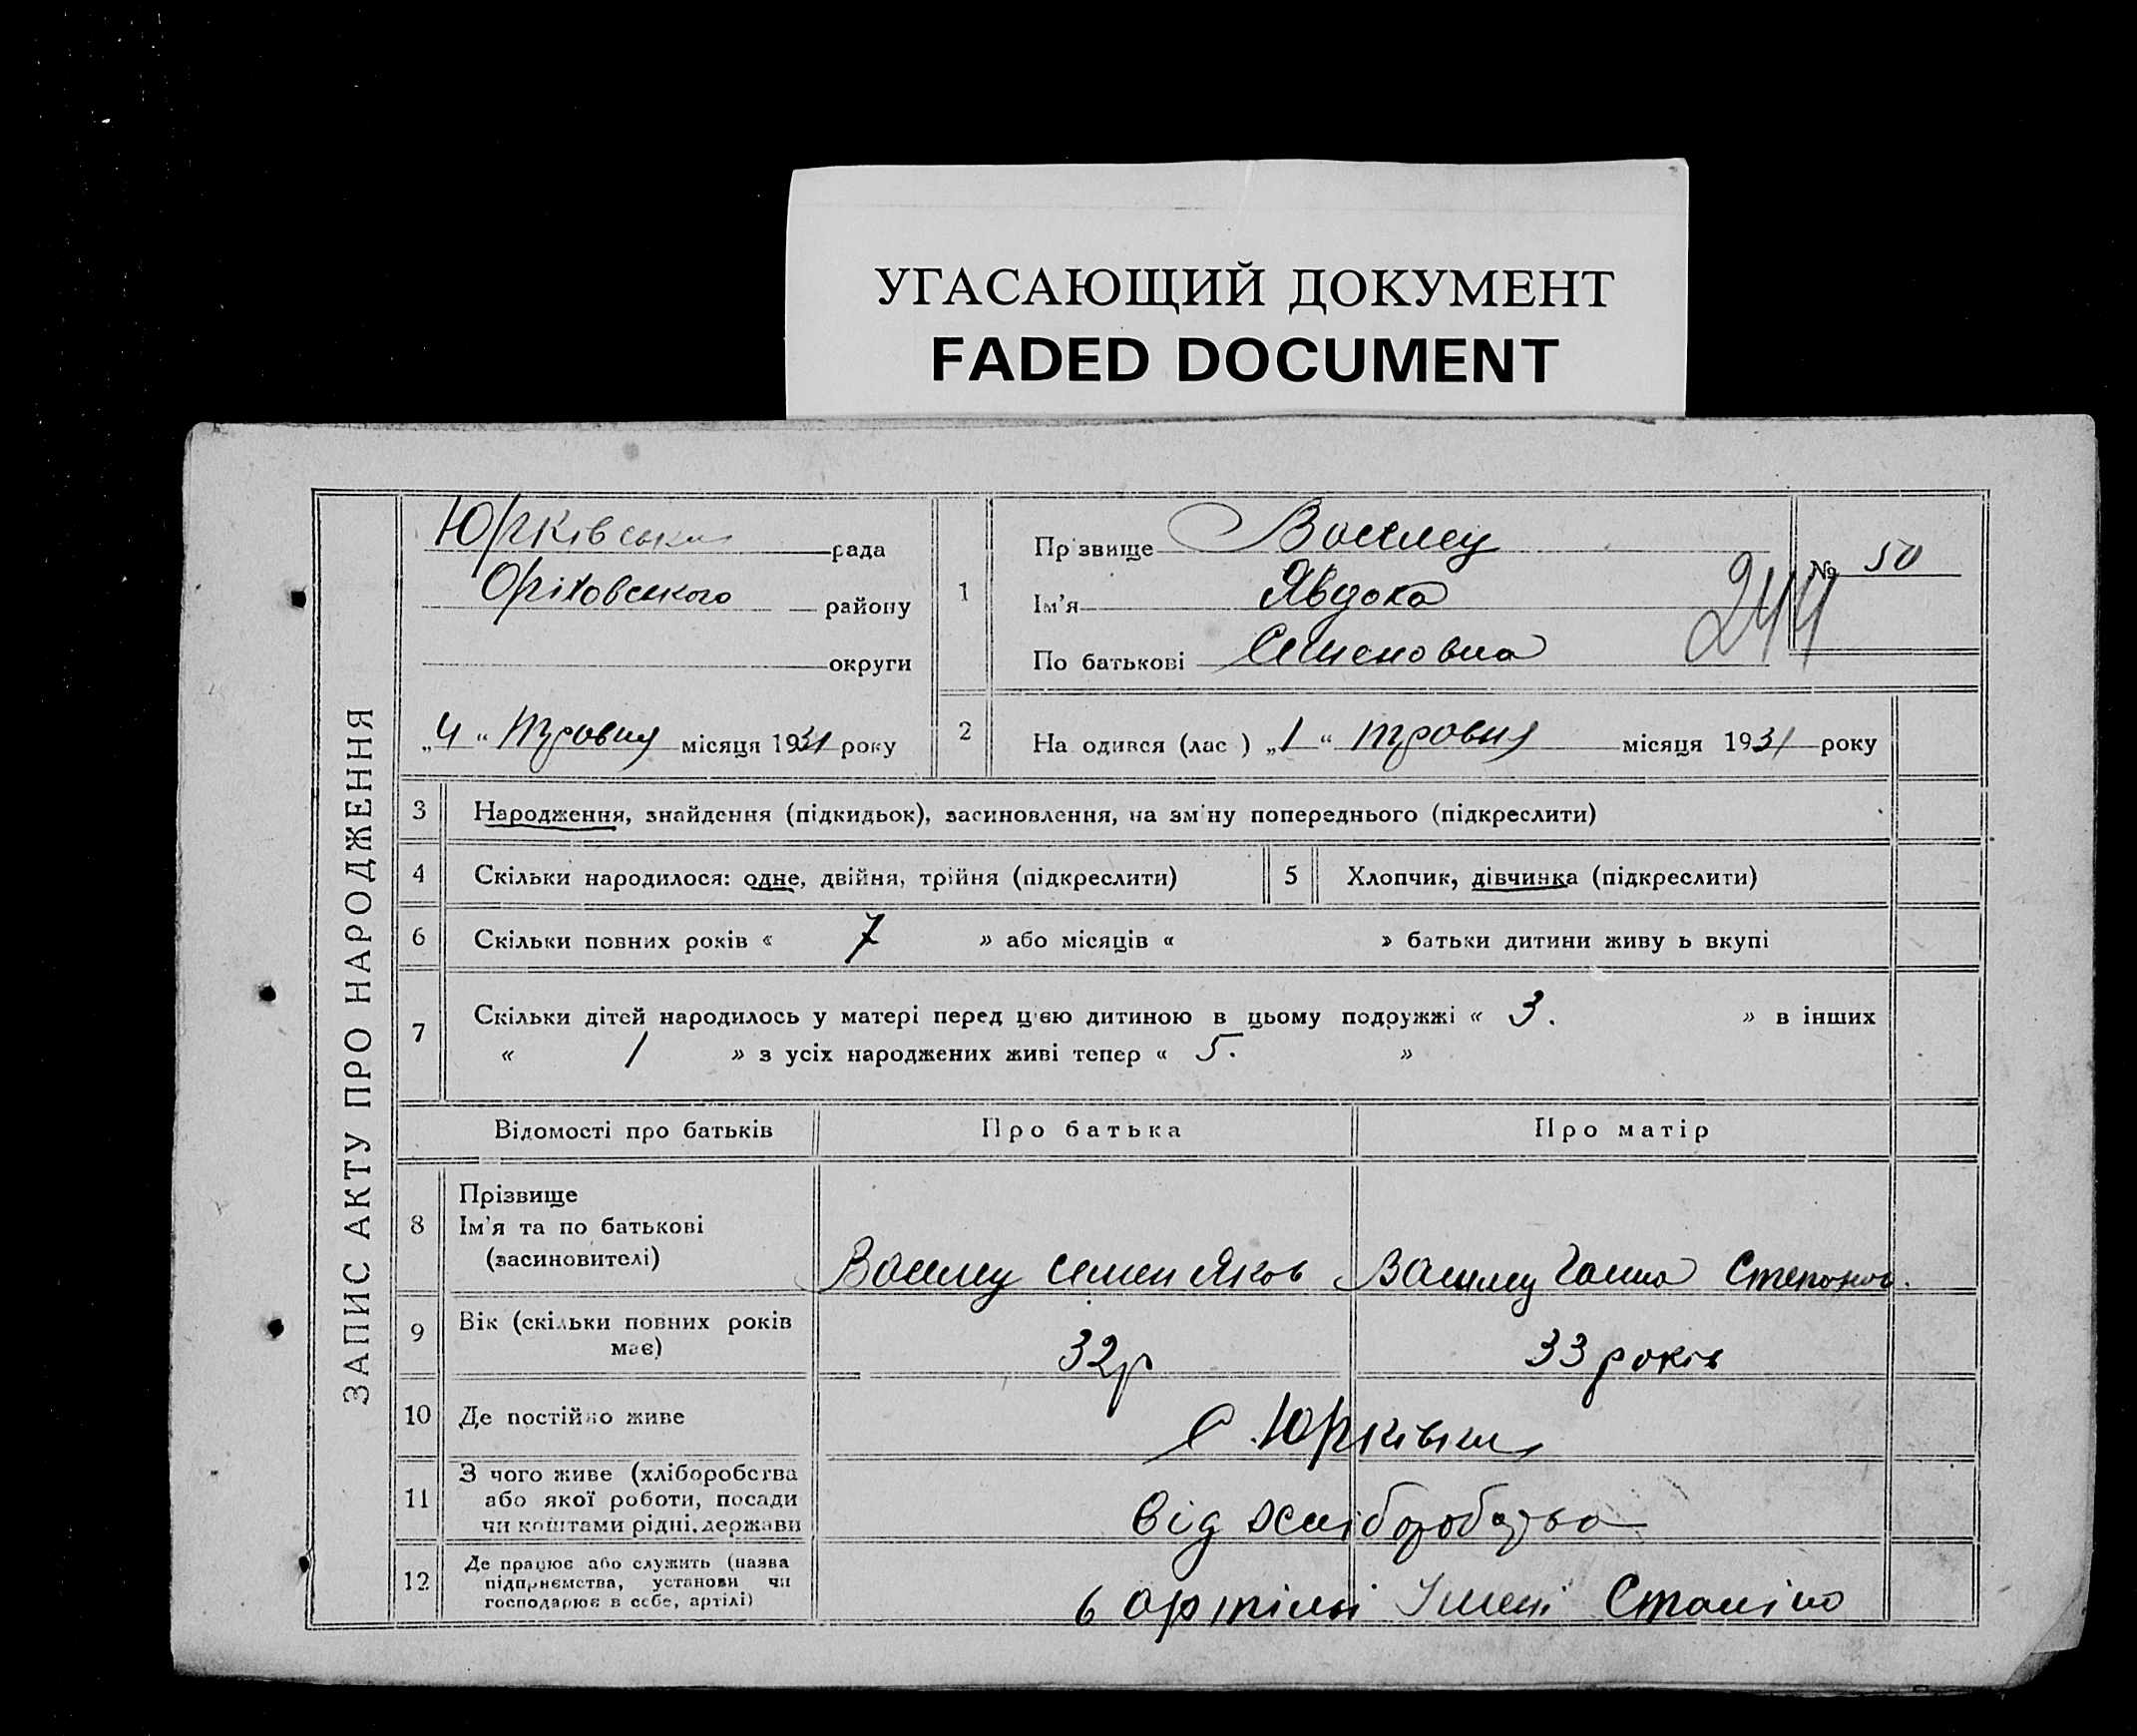 УГАСАЮЩИЙ ДОКУМЕНТ
FADED DOCUMENT
ЗАПИС АКТУ ПРО НАРОДЖЕННЯ
Юрківська рада
Оріховського району
округи
„4“ травня місяця 1931 року
1
Пр звище
Ім’я Явдоха
По батькові Семеновна
№ 50
244
2 На одився (лас ) „1“ травня місяця 1931 року
3 Народження, знайдення (підкидьок), засиновлення, на зм ну попереднього (підкреслити)
4 Скільки народилося: одне, двійня, трійня (підкреслити)
5 Хлопчик, дівчинка (підкреслити)
6 Скільки повних років « 7 » або місяців « » батьки дитини живу ь вкупі
7 Скільки дітей народилось у матері перед цією дитиною в цьому подружжі « 3. » в інших
« 1 » з усіх народжених живі тепер « 5. »
Відомості про батьків Про батька Про матір
8 Прізвище
Ім’я та по батькові
(засиновителі)
Семен Яков Ганна Степанов.
9 Вік (скільки повних років
має)
32р 33 років
10 Де постійно живе
с. Юрківка
11 З чого живе (хліборобства
або якої роботи, посади
чи коштами рідні, держави
від хліборобства
12 Де працює або служить (назва
підприємства, установи чи
господарює в себе, артілі)
в артілі Імені Сталіна